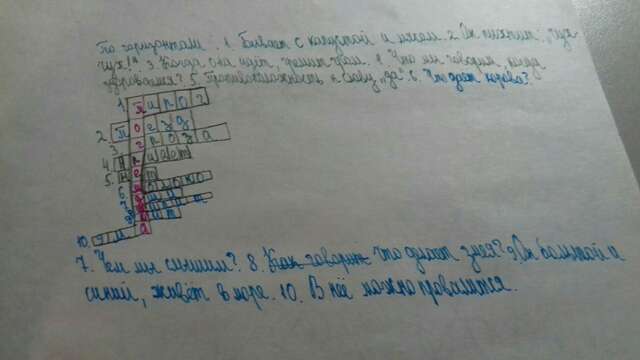 По горизонтали: 1. Бывает с капустой и мясом. 2. Он пыхтит „Чух
чух!" 3. Когда она идёт, гремит гром. 4. Что мы говорим, когда
здороваемся? 5. Противоположность к слову „да" 6. Что даёт корова?
1. пирог
2. поезд
3. гроза
4. привет
5. нет
6.
7.
8.
10. яма
7. Чем мы слышим? 8. Как говорит Что делает змея? 9. Он большой и
синий, живёт в море. 10. В неё можно провалится.